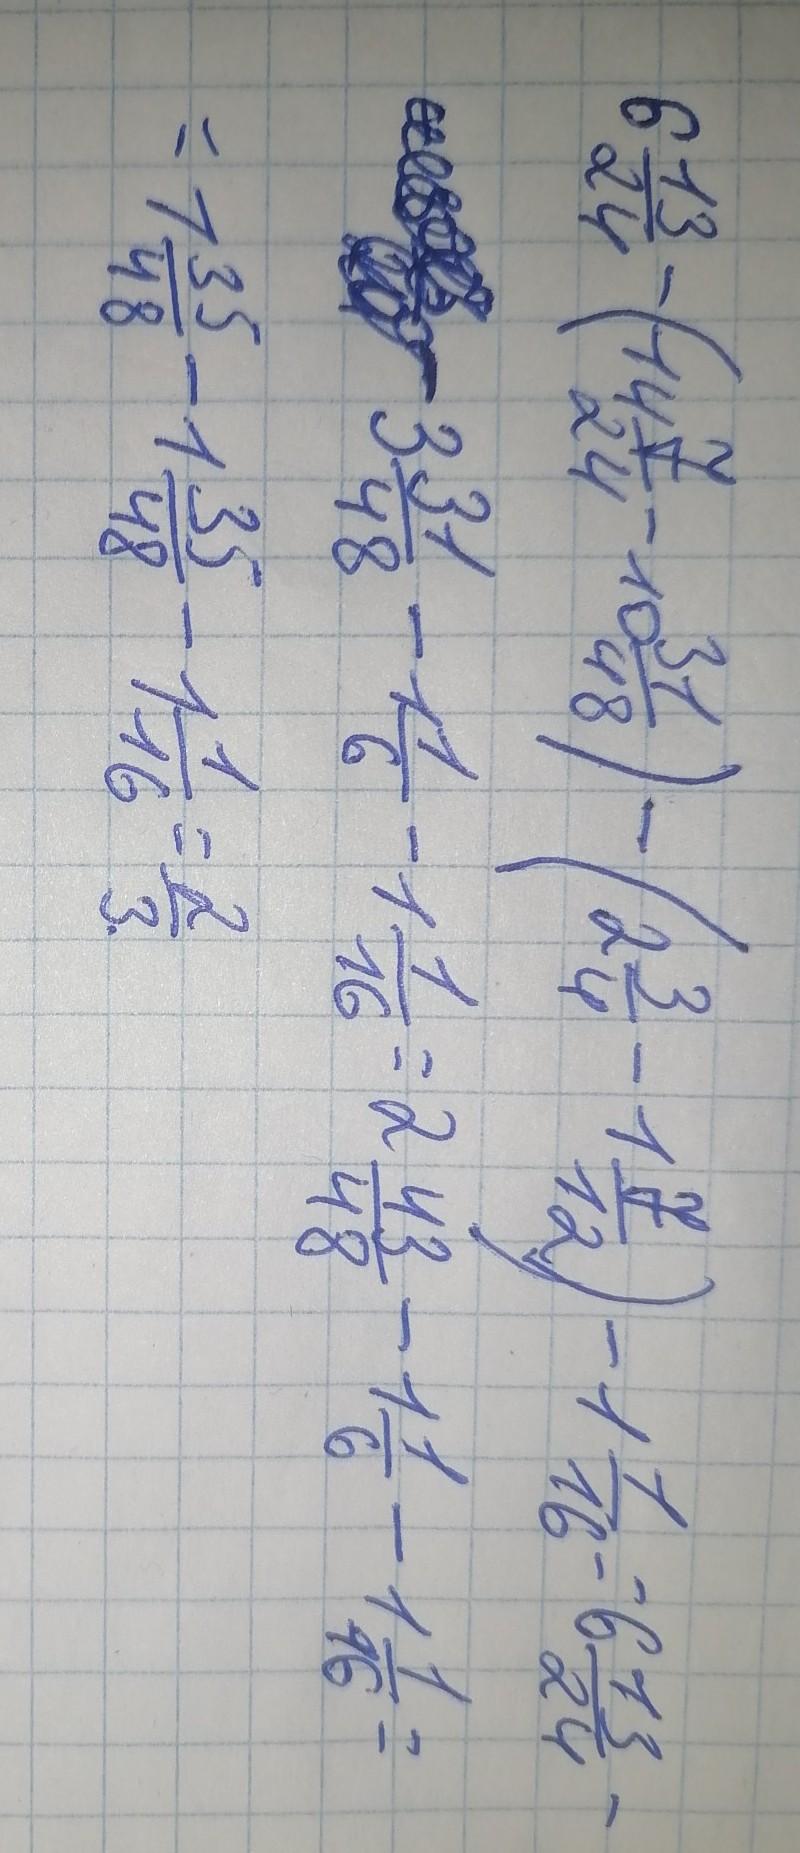 6 13/24 - (14 7/24 - 10 31/48) - (2 3/4 - 1 7/12) - 1 1/16 = 6 13/24 -
- 3 31/48 - 1 1/6 - 1 1/16 = 2 43/48 - 1 1/6 - 1 1/16 =
= 1 35/48 - 1 35/48 - 1 1/16 = 2/3